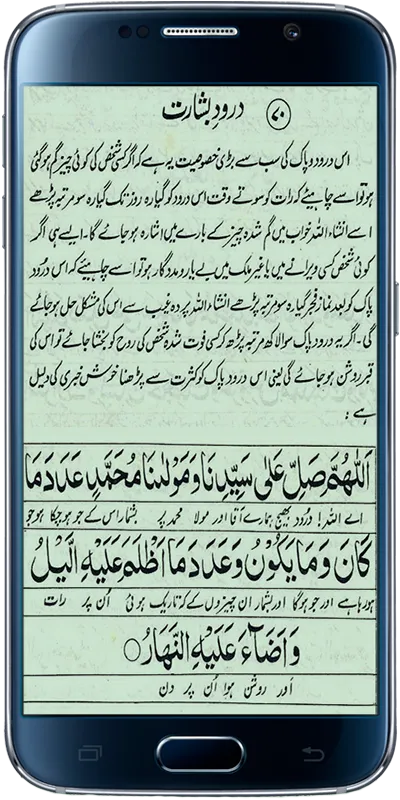 ۷۰ درودِ بشارت
اس درود پاک کی سب سے بڑی خصوصیت یہ ہے کہ اگر کسی شخص کی کوئی چیز گم ہو گئی
ہو تو اسے چاہیئے کہ رات کو سوتے وقت اس درود کو گیارہ روز تک گیارہ سو مرتبہ پڑھے
اسے انشاء اللہ خواب میں گم شدہ چیز کے بارے میں اشارہ ہو جائے گا۔ ایسے ہی اگر
کوئی شخص کسی ویرانے میں یا غیر ملک میں بے یار و مددگار ہو تو اسے چاہیئے کہ اس درود
پاک کو بعد نماز فجر گیارہ سو مرتبہ پڑھے انشاء اللہ پردہ غیب سے اس کی مشکل حل ہو جائے
گی۔ اگر یہ درود پاک سوا لاکھ مرتبہ پڑھ کر کسی فوت شدہ شخص کی روح کو بخشا جائے تو اس کی
قبر روشن ہو جائے گی یعنی اس درود پاک کو کثرت سے پڑھنا خوش خبری کی دلیل
ہے :
اَللّٰهُمَّ صَلِّ عَلٰى سَيِّدِنَا وَمَوْلٰينَا مُحَمَّدٍ عَدَدَ مَا
اے اللہ! درود بھیج ہمارے آقا اور مولا محمد پر بشمار اس کے جو ہو چکا ہو جو
كَانَ وَمَا يَكُوْنُ وَعَدَدَ مَا اَظْلَمَ عَلَيْهِ الَّيْلُ
ہو رہا ہے اور جو ہو گا اور بشمار ان چیزوں کے کہ تاریک ہوئی اُن پر رات
وَاَضَآءَ عَلَيْهِ النَّهَارُ ○
اور روشن ہوا اُن پر دن